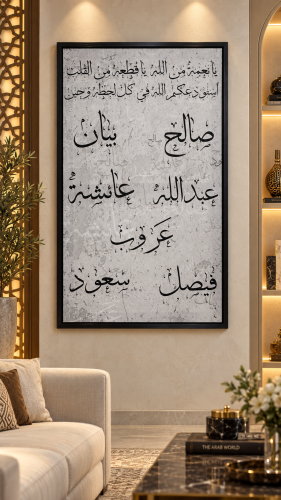 يا نعمة من الله يا قطعة من القلب
استودعكم الله في كل لحظة وحين
صالح بيان
عبدالله عائشة
عروب
فيصل سعود
THE ARAB WORLD